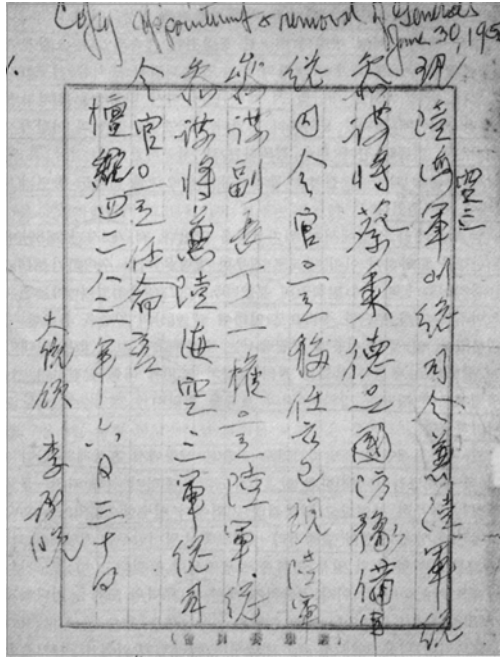 Copy Appointment & removal of Generals
June 30, 195
現陸海軍總司令兼陸軍總
空三
參謀將蔡秉德으國防豫備軍
總司令官으로移任하고現陸軍
參謀副長丁一權으로陸軍總
參謀將兼陸海空三軍總司
令官으로任命함
檀紀四二八三年六月三十日
大統領 李承晩